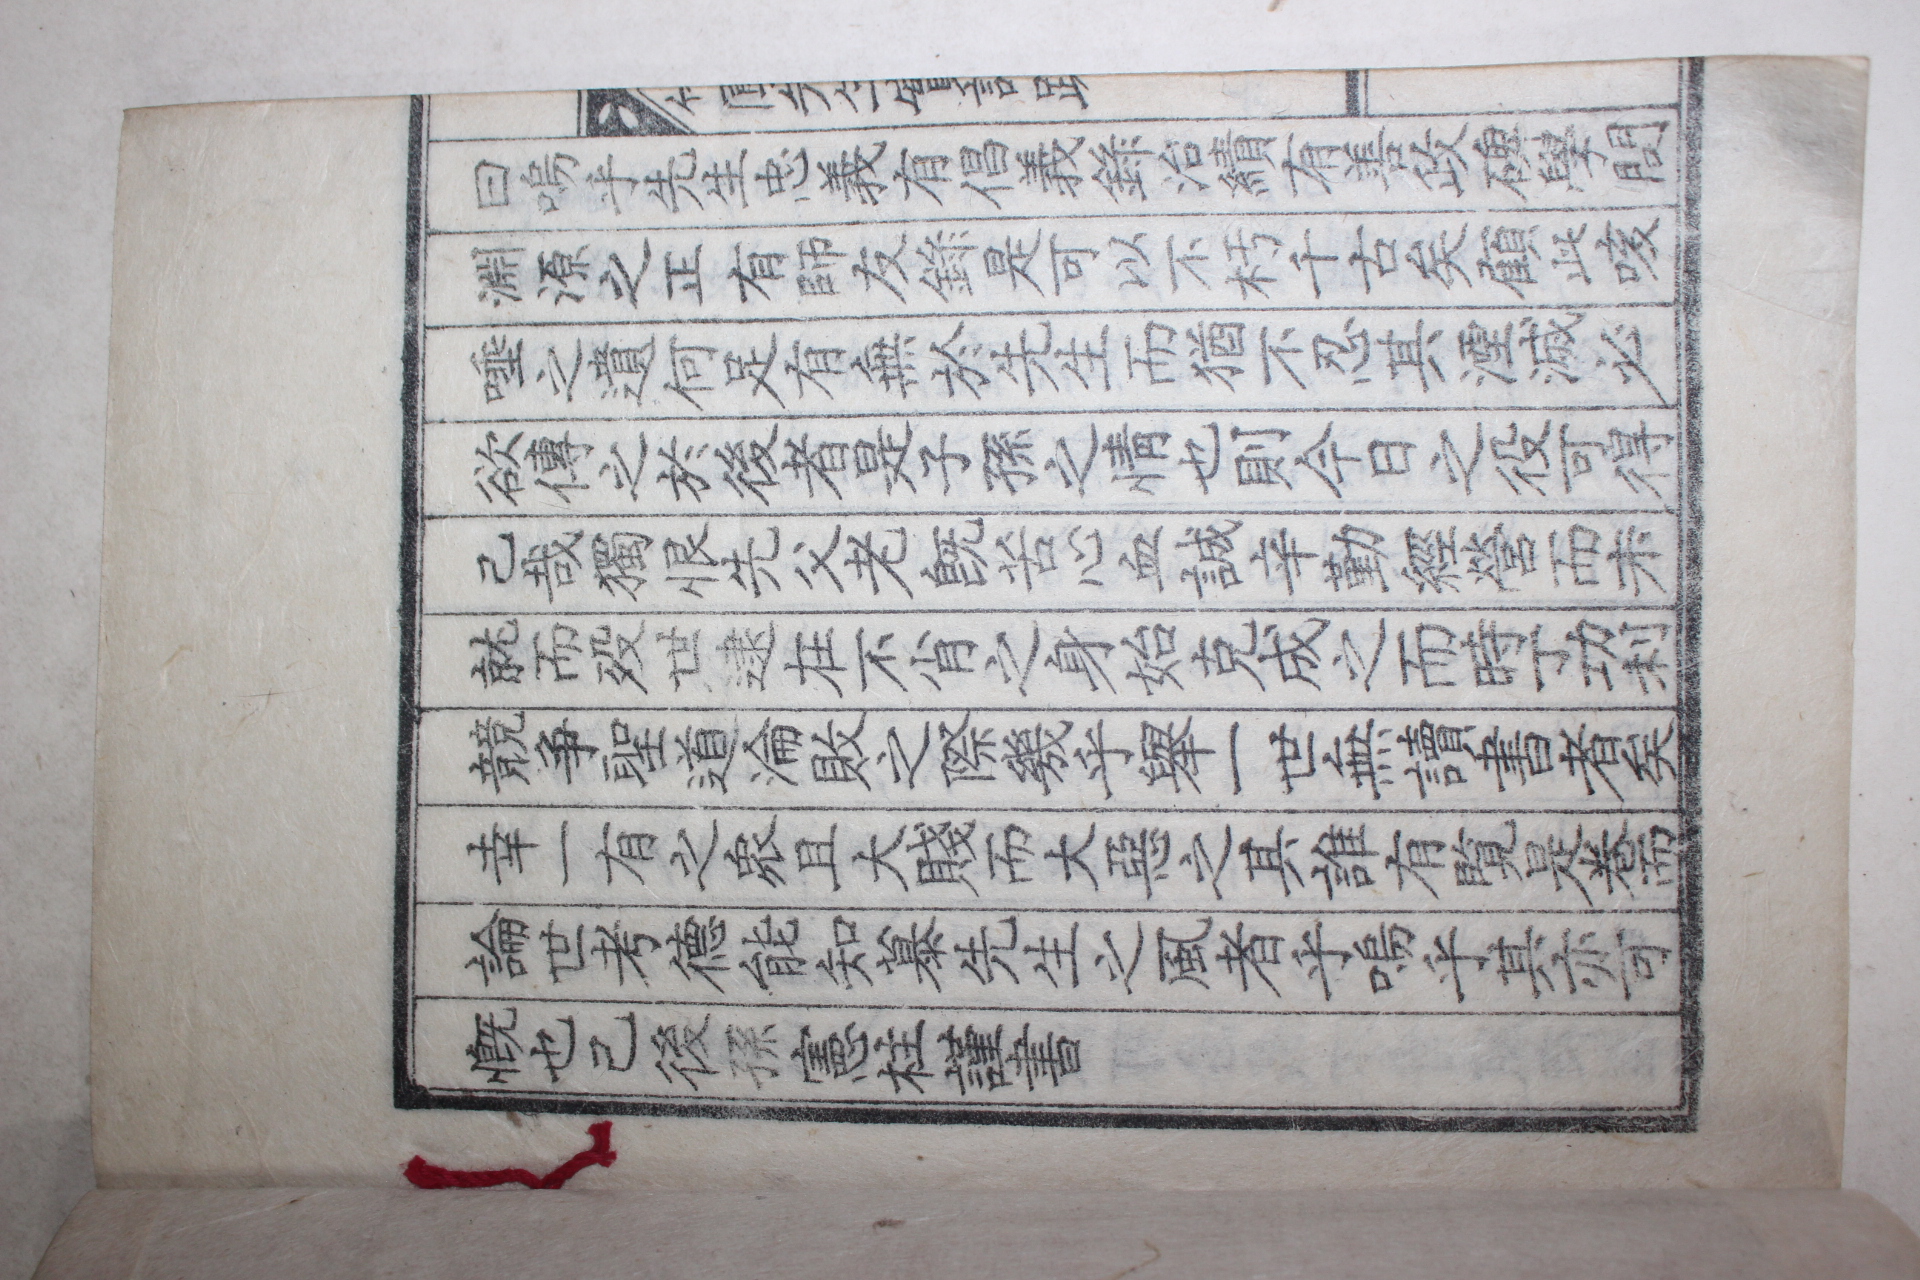 先生實記跋
曰嗚乎先生忠義有倡義錄治績有善政碑學問
淵源之正有師友錄是可以不朽千古矣顧此咳
唾之遺何足有無於先生而猶不忍其湮滅必
欲傳之於後者是子孫之情也則今日之役可得
己哉獨恨先父老旣苦心血誠辛勤經營而未
就而歿世逮在不肖之身始克成之而時丁功利
競爭聖道淪敗之際幾乎舉一世無讀書者矣
幸一有之衆且大賤而大惡之其誰有覽是卷而
論世考德能知慕先生之風者乎嗚乎其亦可
慨也己後孫憲柱謹書